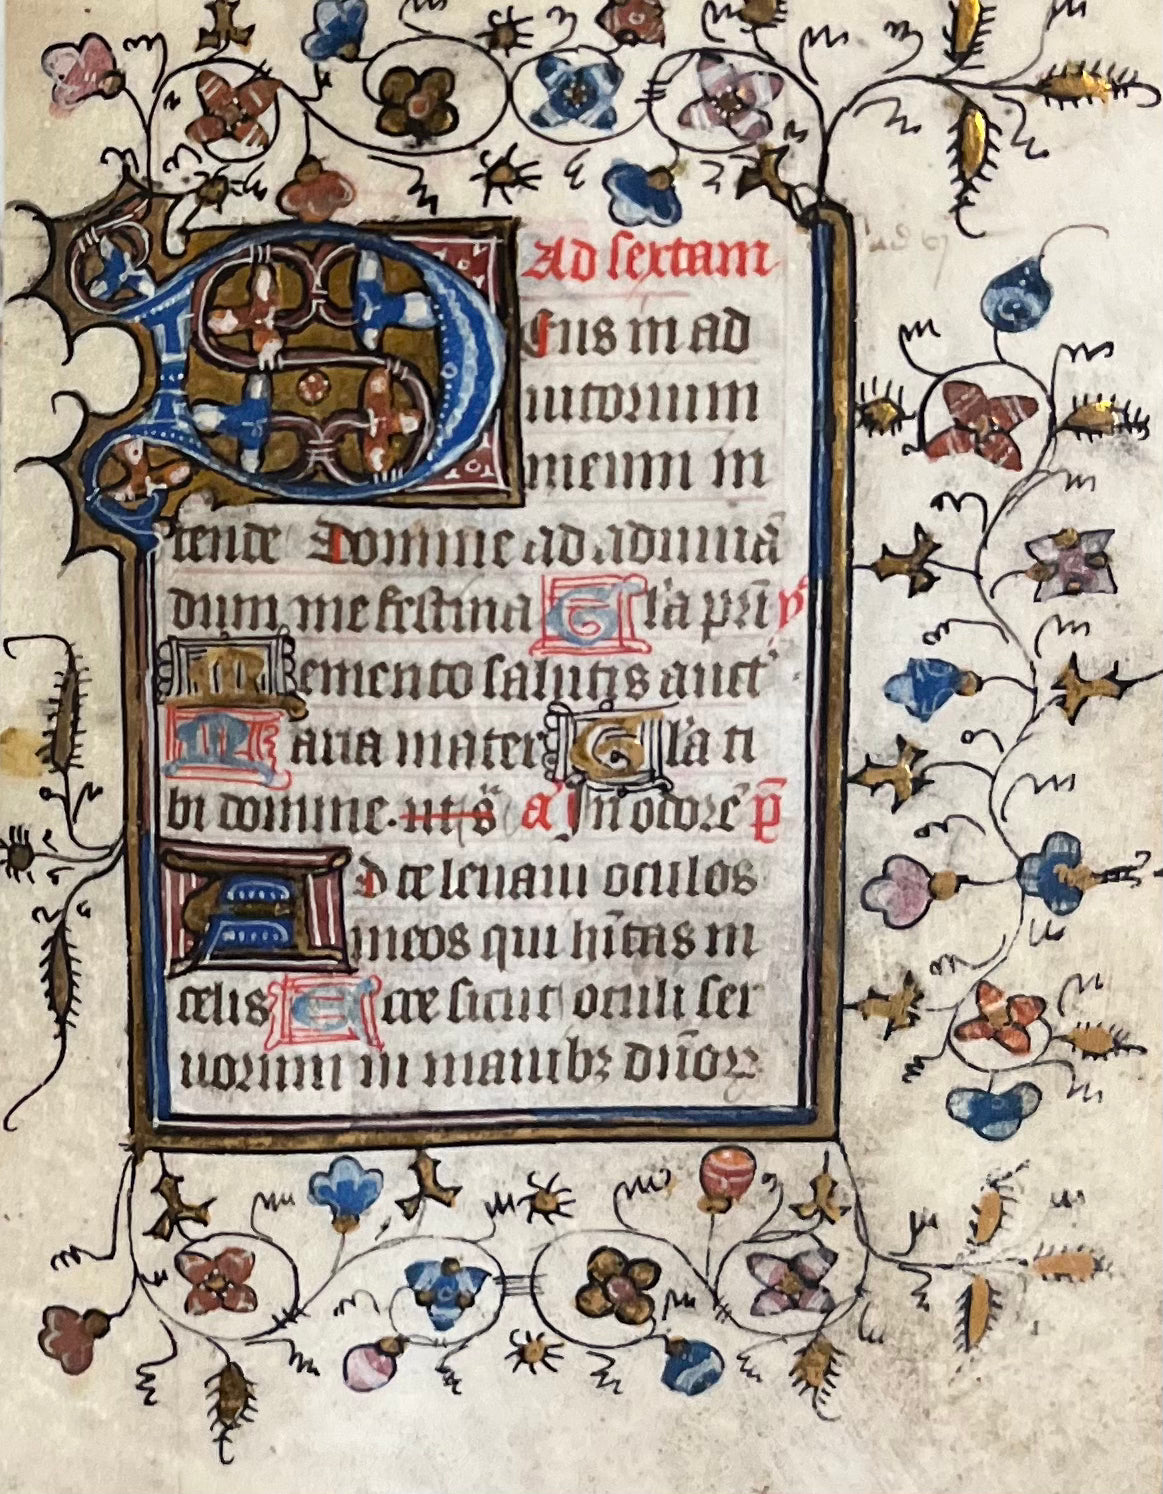 Ad sextam
Deus in ad
iutorium
meum in
tende Domine ad adiuuā
dum me festina Gl'a pr̄i y'
Memento salutis auct'
Maria mater Gl'a ti
bi domine. ut s̄ a' In odorē p̄
Ad te leuaui oculos
meos qui hītas in
celis Ecce sicut oculi ser
uorum in manibꝫ dn̄oꝝ